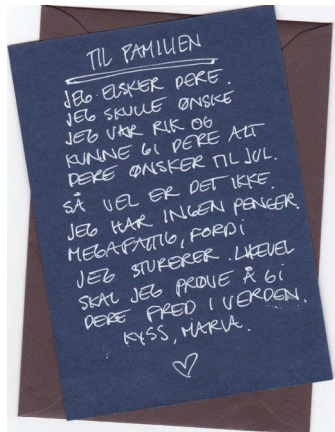 TIL FAMILIEN
JEG ELSKER DERE.
JEG SKULLE ØNSKE
JEG VAR RIK OG
KUNNE GI DERE ALT
DERE ØNSKER TIL JUL.
SÅ VEL ER DET IKKE.
JEG HAR INGEN PENGER.
MEGAFATTIG, FORDI
JEG STUDERER. LIKEVEL
SKAL JEG PRØVE Å GI
DERE FRED I VERDEN.
KYSS, MARIA.